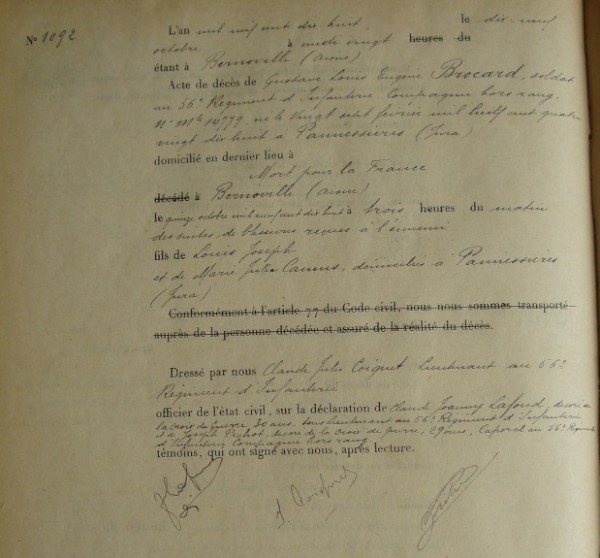 N° 1092
L'an mil neuf cent dix huit, le dix-neuf
octobre à midi vingt heures du
étant à Bernoville (Aisne)
Acte de décès de Gustave Louis Eugène Brocard, soldat
au 56e Régiment d'Infanterie Compagnie hors rang,
N° Mle 14779 né le vingt sept février mil huit cent quatre
vingt dix huit à Pannessières (Jura)
domicilié en dernier lieu à
Mort pour la France
décédé à Bernoville (Aisne)
le quinze octobre mil neuf cent dix huit à trois heures du matin
des suites de blessures reçues à l'ennemi
fils de Louis Joseph
et de Marie Julie Camus, domiciliés à Pannessières
(Jura)
Conformément à l'article 77 du Code civil, nous nous sommes transporté
auprès de la personne décédée et assuré de la réalité du décès.
Dressé par nous Claude Jules Coignet, Lieutenant au 56e
Régiment d'Infanterie
officier de l'état civil, sur la déclaration de Claude Joanny Lafond, décoré de
la croix de guerre, 30 ans, sous lieutenant au 56e Régiment d'Infanterie
et de Joseph Pechot, décoré de la croix de guerre, 29 ans, Caporal au 56e Régiment
d'Infanterie Compagnie hors rang.
témoins, qui ont signé avec nous, après lecture.
J Coignet